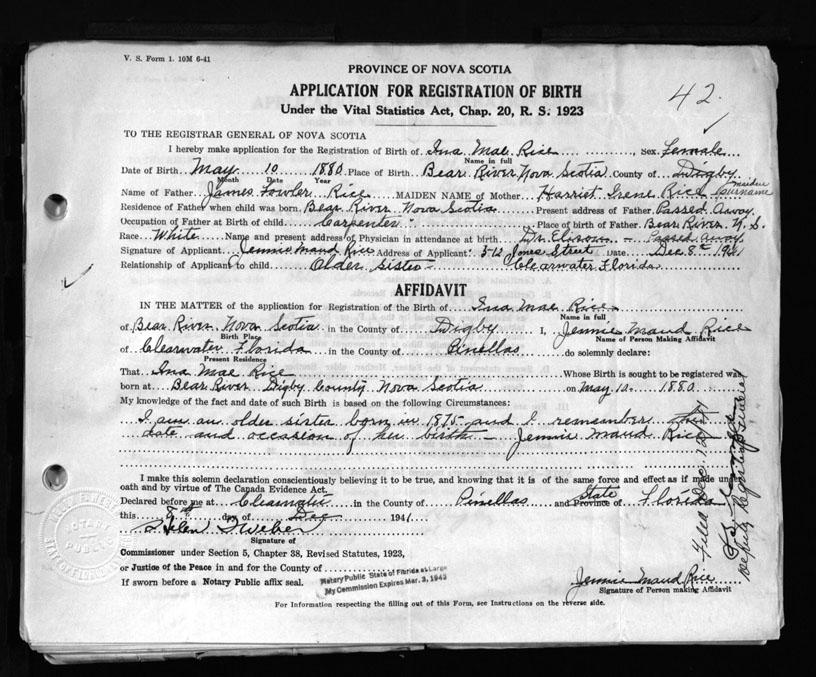 V. S. Form 1. 10M 6-41
PROVINCE OF NOVA SCOTIA
APPLICATION FOR REGISTRATION OF BIRTH
Under the Vital Statistics Act, Chap. 20, R. S. 1923
42.
TO THE REGISTRAR GENERAL OF NOVA SCOTIA
I hereby make application for the Registration of Birth of Ina Mae Rice, Sex Female
Name in full
Date of Birth May 10 1880 Place of Birth Bear River Nova Scotia County of Digby
Month Date Year
Name of Father James Fowler Rice MAIDEN NAME of Mother Harriet Irene Rice maiden surname
Residence of Father when child was born Bear River Nova Scotia Present address of Father Passed Away
Occupation of Father at Birth of child Carpenter Place of birth of Father Bear River N. S.
Race White Name and present address of Physician in attendance at birth Dr. Passed away
Signature of Applicant Jennie Maud Rice Address of Applicant 512 Jones Street Date Dec 8th 1941
Relationship of Applicant to child Older Sister Clearwater Florida
AFFIDAVIT
IN THE MATTER of the application for Registration of the Birth of Ina Mae Rice
Name in full
of Bear River Nova Scotia in the County of Digby I, Jennie Maud Rice
Birth Place Name of Person Making Affidavit
of Clearwater Florida in the County of Pinellas do solemnly declare:
Present Residence
That Ina Mae Rice Whose Birth is sought to be registered was
born at Bear River Digby County Nova Scotia on May 10 1880
My knowledge of the fact and date of such Birth is based on the following Circumstances:
I am an older sister born in 1875 and I remember the
date and occasion of her birth - Jennie Maud Rice
I make this solemn declaration conscientiously believing it to be true, and knowing that it is of the same force and effect as if made under
oath and by virtue of The Canada Evidence Act.
Declared before me at Clearwater in the County of Pinellas and Province of State Florida
this 8th day of Dec 1941
Helen Weber
Signature of
Commissioner under Section 5, Chapter 38, Revised Statutes, 1923,
or Justice of the Peace in and for the County of
If sworn before a Notary Public affix seal.
Notary Public State of Florida at Large
My Commission Expires Mar. 3, 1943
Jennie Maud Rice
Signature of Person making Affidavit
For Information respecting the filling out of this Form, see Instructions on the reverse side.
Filed Dec. 12
Deputy Registrar General